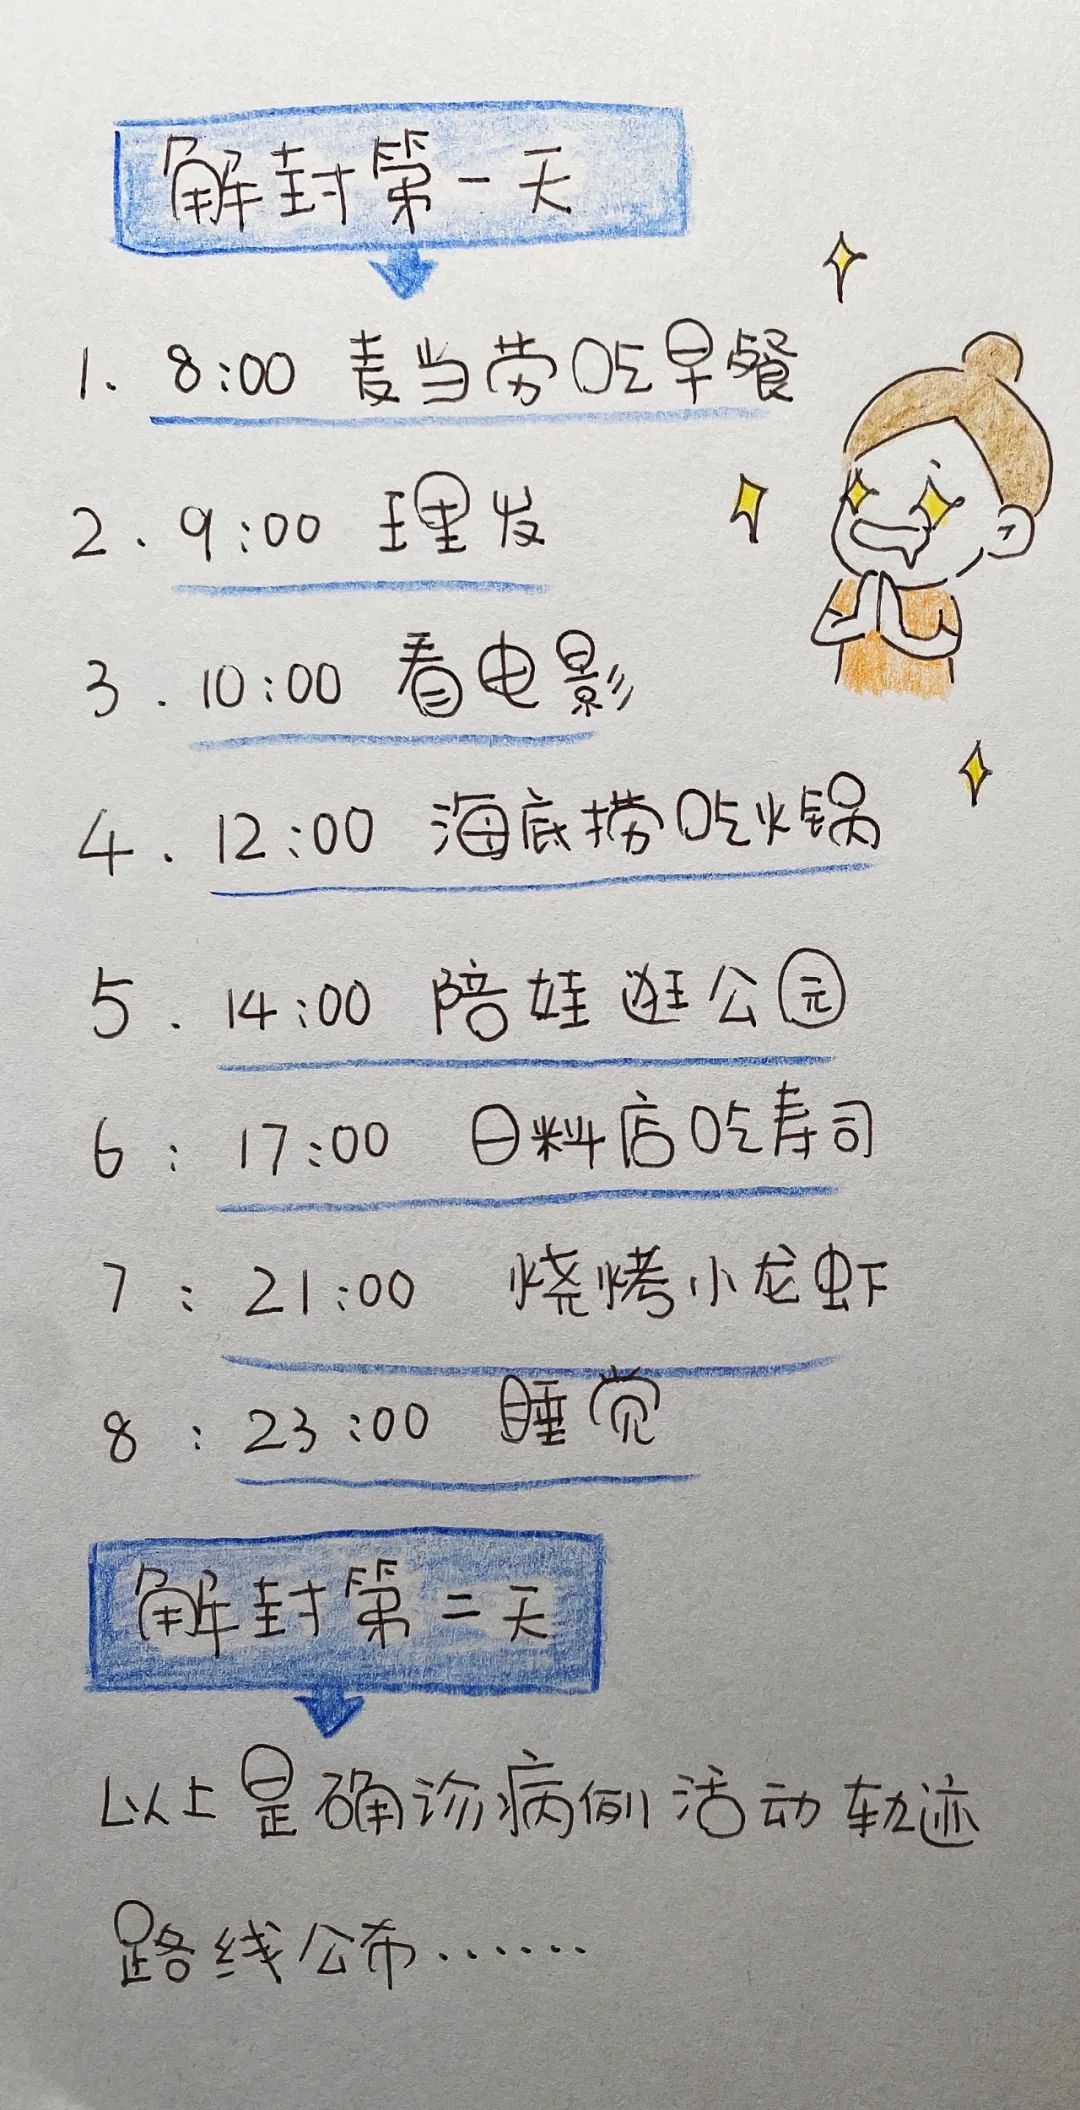 解封第一天
1. 8:00 麦当劳吃早餐
2. 9:00 理发
3. 10:00 看电影
4. 12:00 海底捞吃火锅
5. 14:00 陪娃逛公园
6: 17:00 日料店吃寿司
7: 21:00 烧烤小龙虾
8: 23:00 睡觉
解封第二天
以上是确诊病例活动轨迹
路线公布……